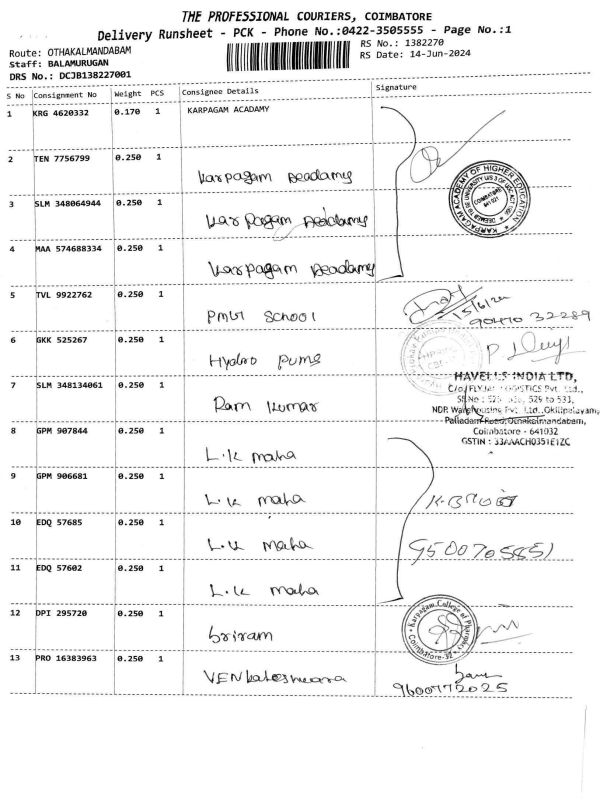 THE PROFESSIONAL COURIERS, COIMBATORE
Delivery Runsheet - PCK - Phone No.:0422-3505555 - Page No.:1
Route: OTHAKALMANDABAM
RS No.: 1382270
Staff: BALAMURUGAN
RS Date: 14-Jun-2024
DRS No.: DCJB138227001
S No Consignment No Weight PCS Consignee Details Signature
1 KRG 4620332 0.170 1 KARPAGAM ACADAMY
2 TEN 7756799 0.250 1
Karpagam Acadamy
KARPAGAM ACADEMY OF HIGHER EDUCATION
COIMBATORE
641 021
3 SLM 348064944 0.250 1
Karpagam Acadamy
4 MAA 574688334 0.250 1
Karpagam Acadamy
5 TVL 9922762 0.250 1
PMVI School
15/6/24
90470 32289
6 GKK 525267 0.250 1
Hydro Pump
7 SLM 348134061 0.250 1
Ram Kumar
HAVELLS INDIA LTD,
C/o FLYJAC LOGISTICS Pvt. Ltd.,
SF.No : 529 to 533,
NDR Warehousing Pvt. Ltd., Okilipalayam,
Palladam Road, Othakalmandabam,
Coimbatore - 641032
GSTIN : 33AAACH0351E1ZC
8 GPM 907844 0.250 1
L.K maha
9 GPM 906681 0.250 1
L.K maha
10 EDQ 57685 0.250 1
L.K maha
9500705851
11 EDQ 57602 0.250 1
L.K maha
12 DPI 295720 0.250 1
Sriram
Karpagam College of Pharmacy
Coimbatore-32
13 PRO 16383963 0.250 1
VENkateshwara
9600772025